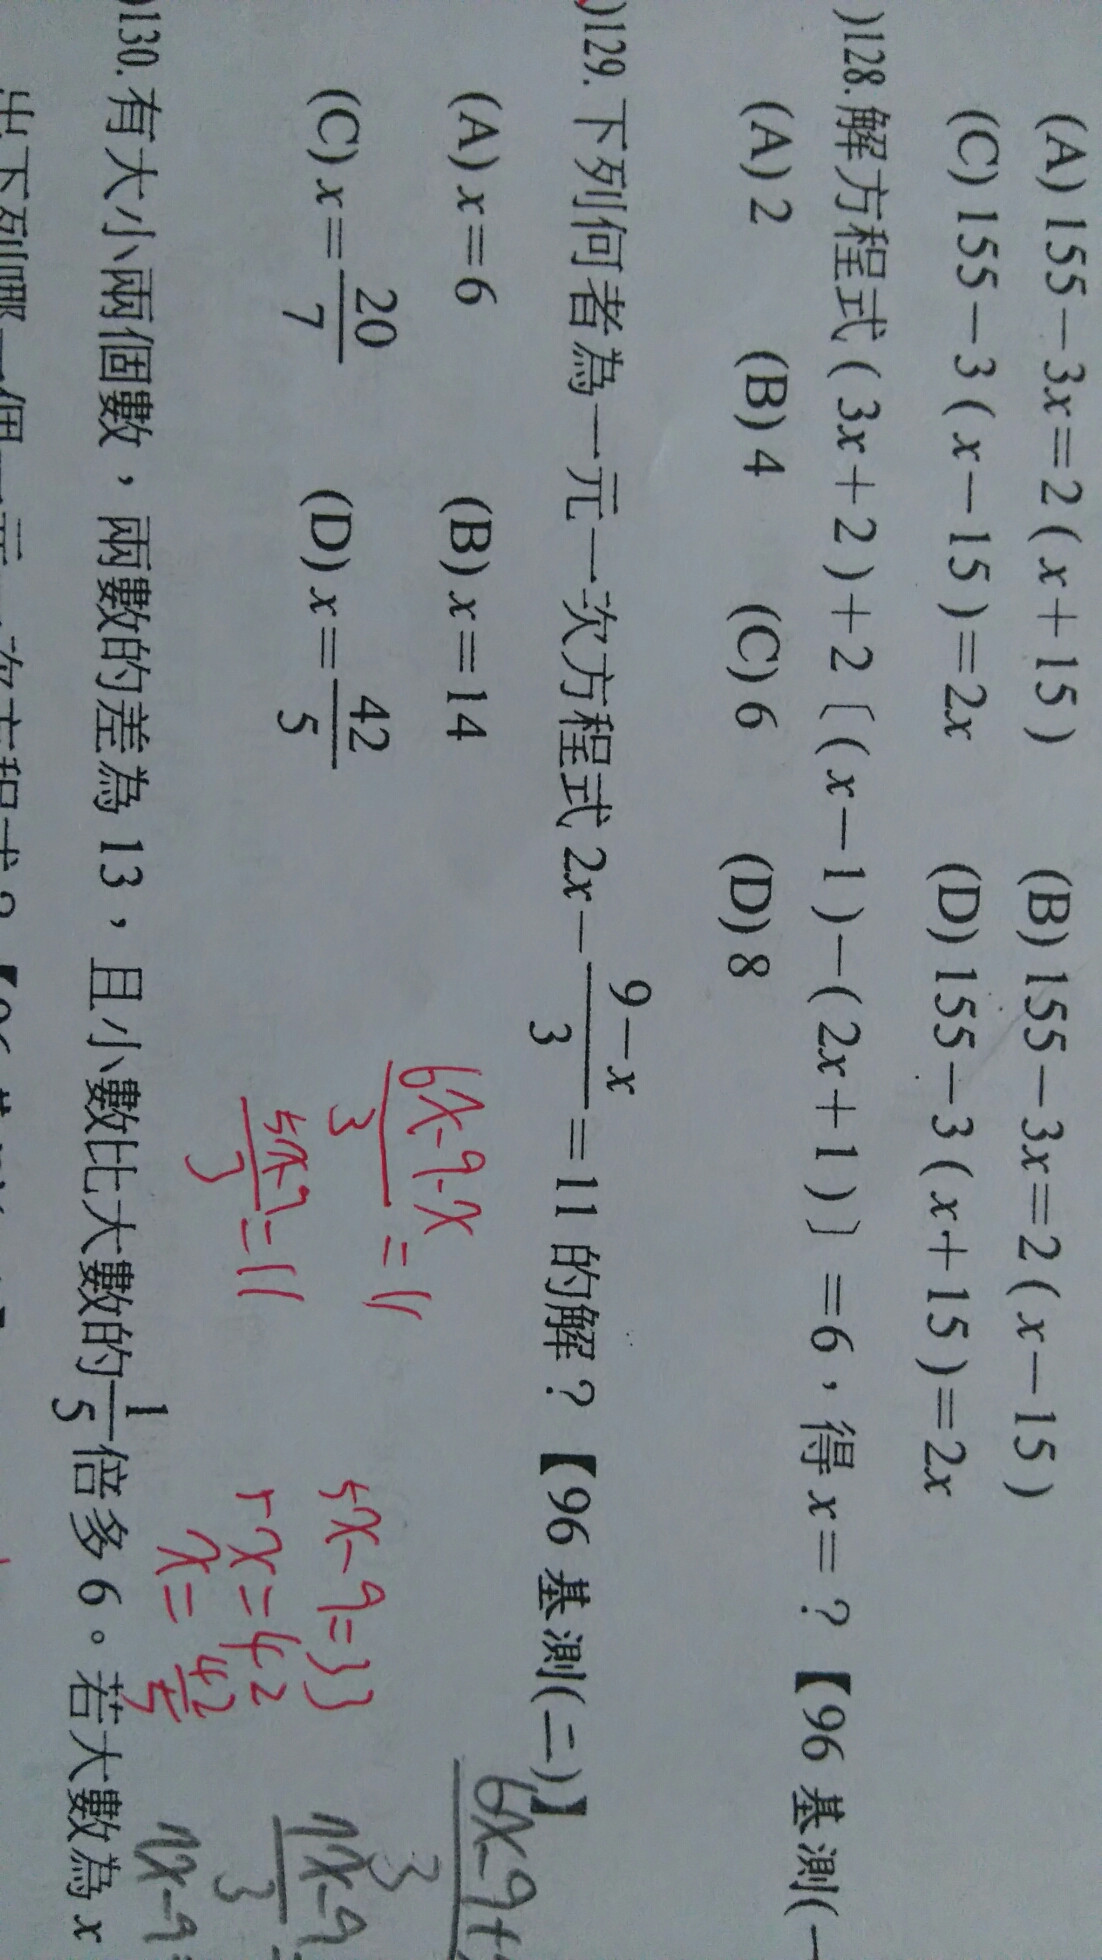 (A) 155－3x＝2(x＋15) (B) 155－3x＝2(x－15)
(C) 155－3(x－15)＝2x (D) 155－3(x＋15)＝2x
)128. 解方程式(3x＋2)＋2〔(x－1)－(2x＋1)〕＝6，得x＝？【96 基測(一
(A) 2 (B) 4 (C) 6 (D) 8
)129. 下列何者為一元一次方程式 2x－\frac{9－x}{3}＝11 的解？【96 基測(二)】
(A) x＝6 (B) x＝14
(C) x＝\frac{20}{7} (D) x＝\frac{42}{5}
\frac{6x-9-x}{3}=11
\frac{5x-9}{3}=11
5x-9=33
5x=42
x=\frac{42}{5}
6x-9+
3
7x-9
3
7x-9=
)130. 有大小兩個數，兩數的差為 13，且小數比大數的\frac{1}{5}倍多 6。若大數為 x
出下列哪一個一元一次方程式？【96